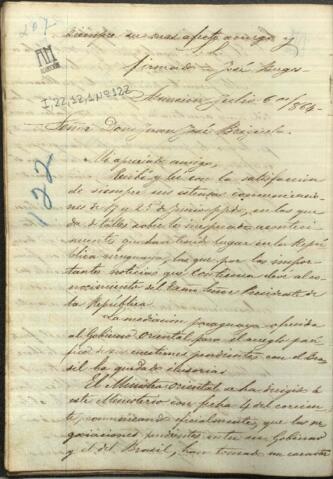 207
siempre su mas afecto amigo y
S. S.
firmado José Berges
I, 22, 12, 1 Nº 122
Asuncion Julio 6 de 1864
Señor Don Juan José Brizuela.
122
Mi apreciado amigo,
Recibí y leí con la satisfaccion
de siempre sus estensas comunicacio
nes de 17 y 25 de junio ppdo, en las que
da detalles sobre los inesperados aconteci
mientos que han tenido lugar en la Repú
blica uruguaya, las que por las impor
tantes noticias que contienen elevé al co
nocimiento del Exmo Señor Presidente de
la República.
La mediacion paraguaya ofrecida
al Gobierno Oriental para el arreglo pací
fico de sus cuestiones pendientes con el Bra
sil ha quedado
El Ministro oriental se ha dirigido á
este Ministerio con fecha 4 del corrien
te, comunicando oficialmente, que las ne
gociaciones pendientes entre su Gobierno
y el del Brasil, han tomado un caracter